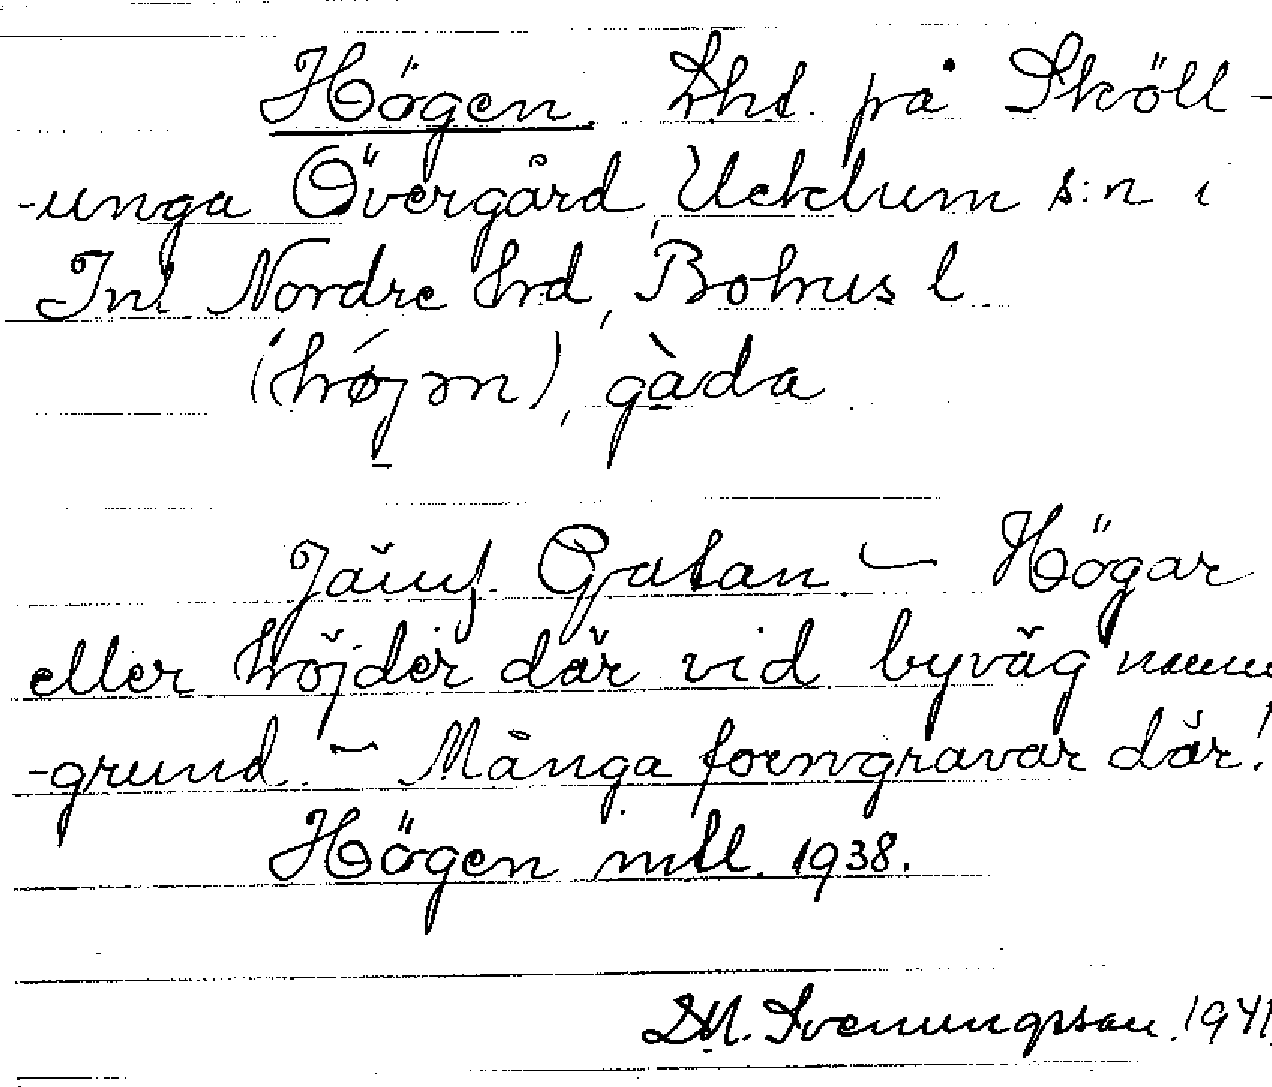 Högen. Lht. på Sköll-
-unga Övergård, Ucklum s:n i
Inl Nordre hrd, Bohus l.
(hǿjən), gàda
Jämf. Gatan. — Högar
eller höjder där vid byväg namn
-grund. — Många forngravar där!
Högen mtl. 1938.
D.M. Svenungsson. 1941